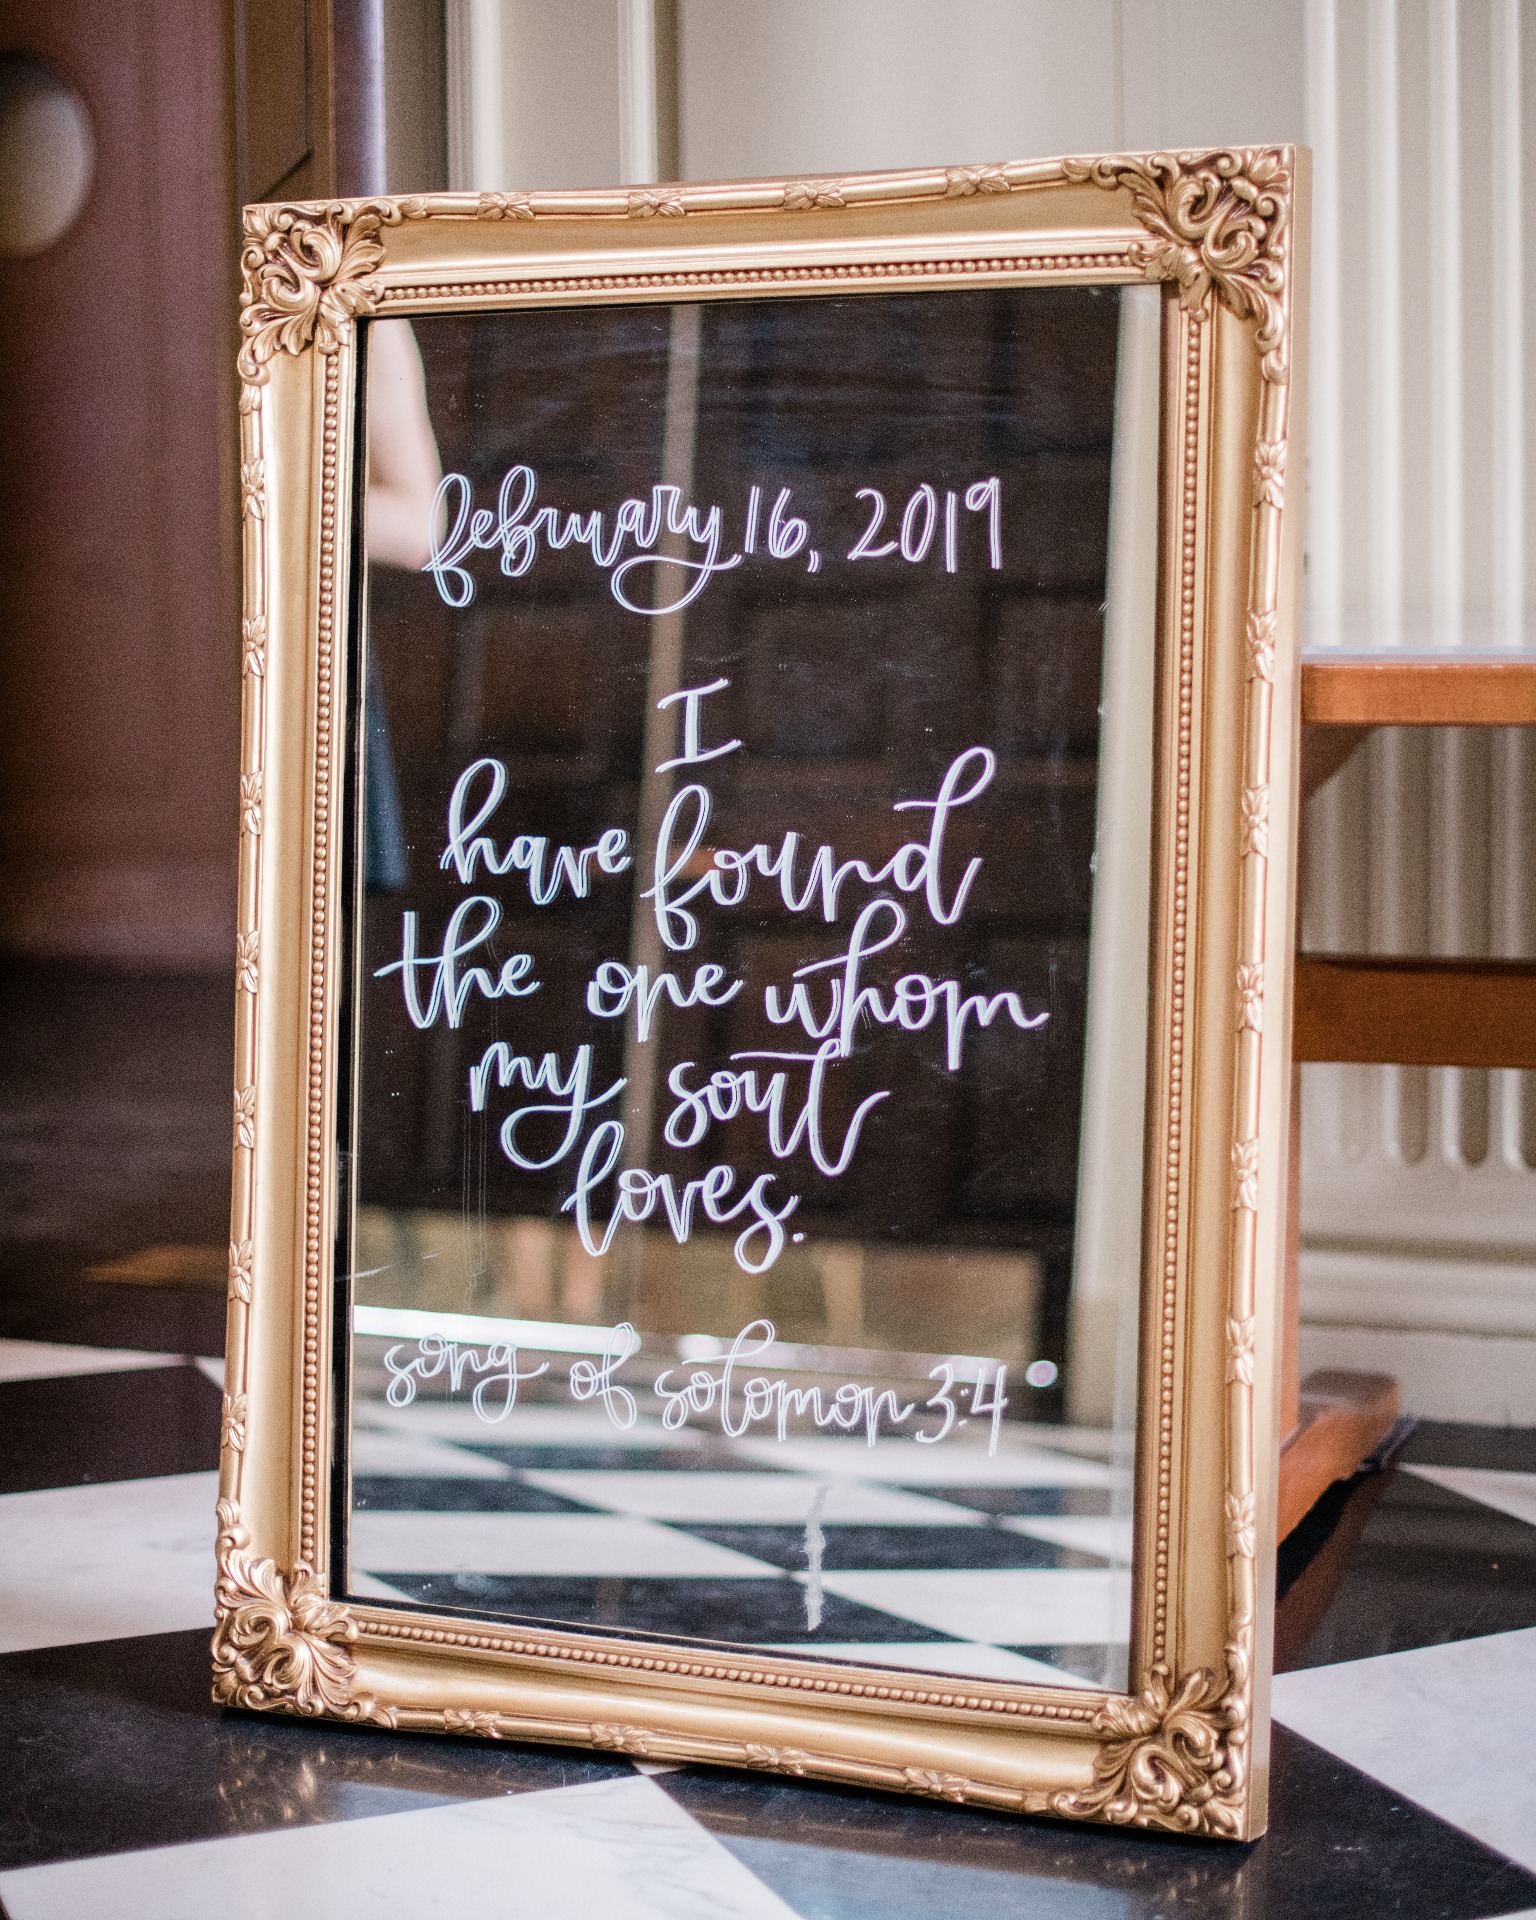 february 16, 2019
I
have found
the one whom
my soul
loves.
song of solomon 3:4